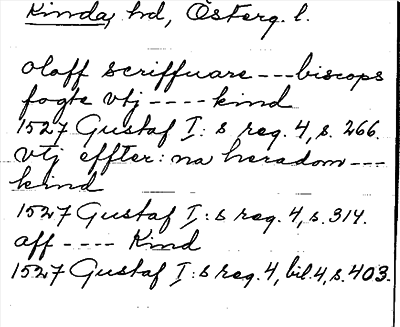 Kinda, hd, Österg. l.
oloff scriffuare --- biscops
fogte vtj ---- kind
1527 Gustaf I:s reg. 4, s. 266.
vtj effter:na heradom ---
kind
1527 Gustaf I:s reg. 4, s. 314.
aff ---- Kind
1527 Gustaf I:s reg. 4, bil. 4, s. 403.